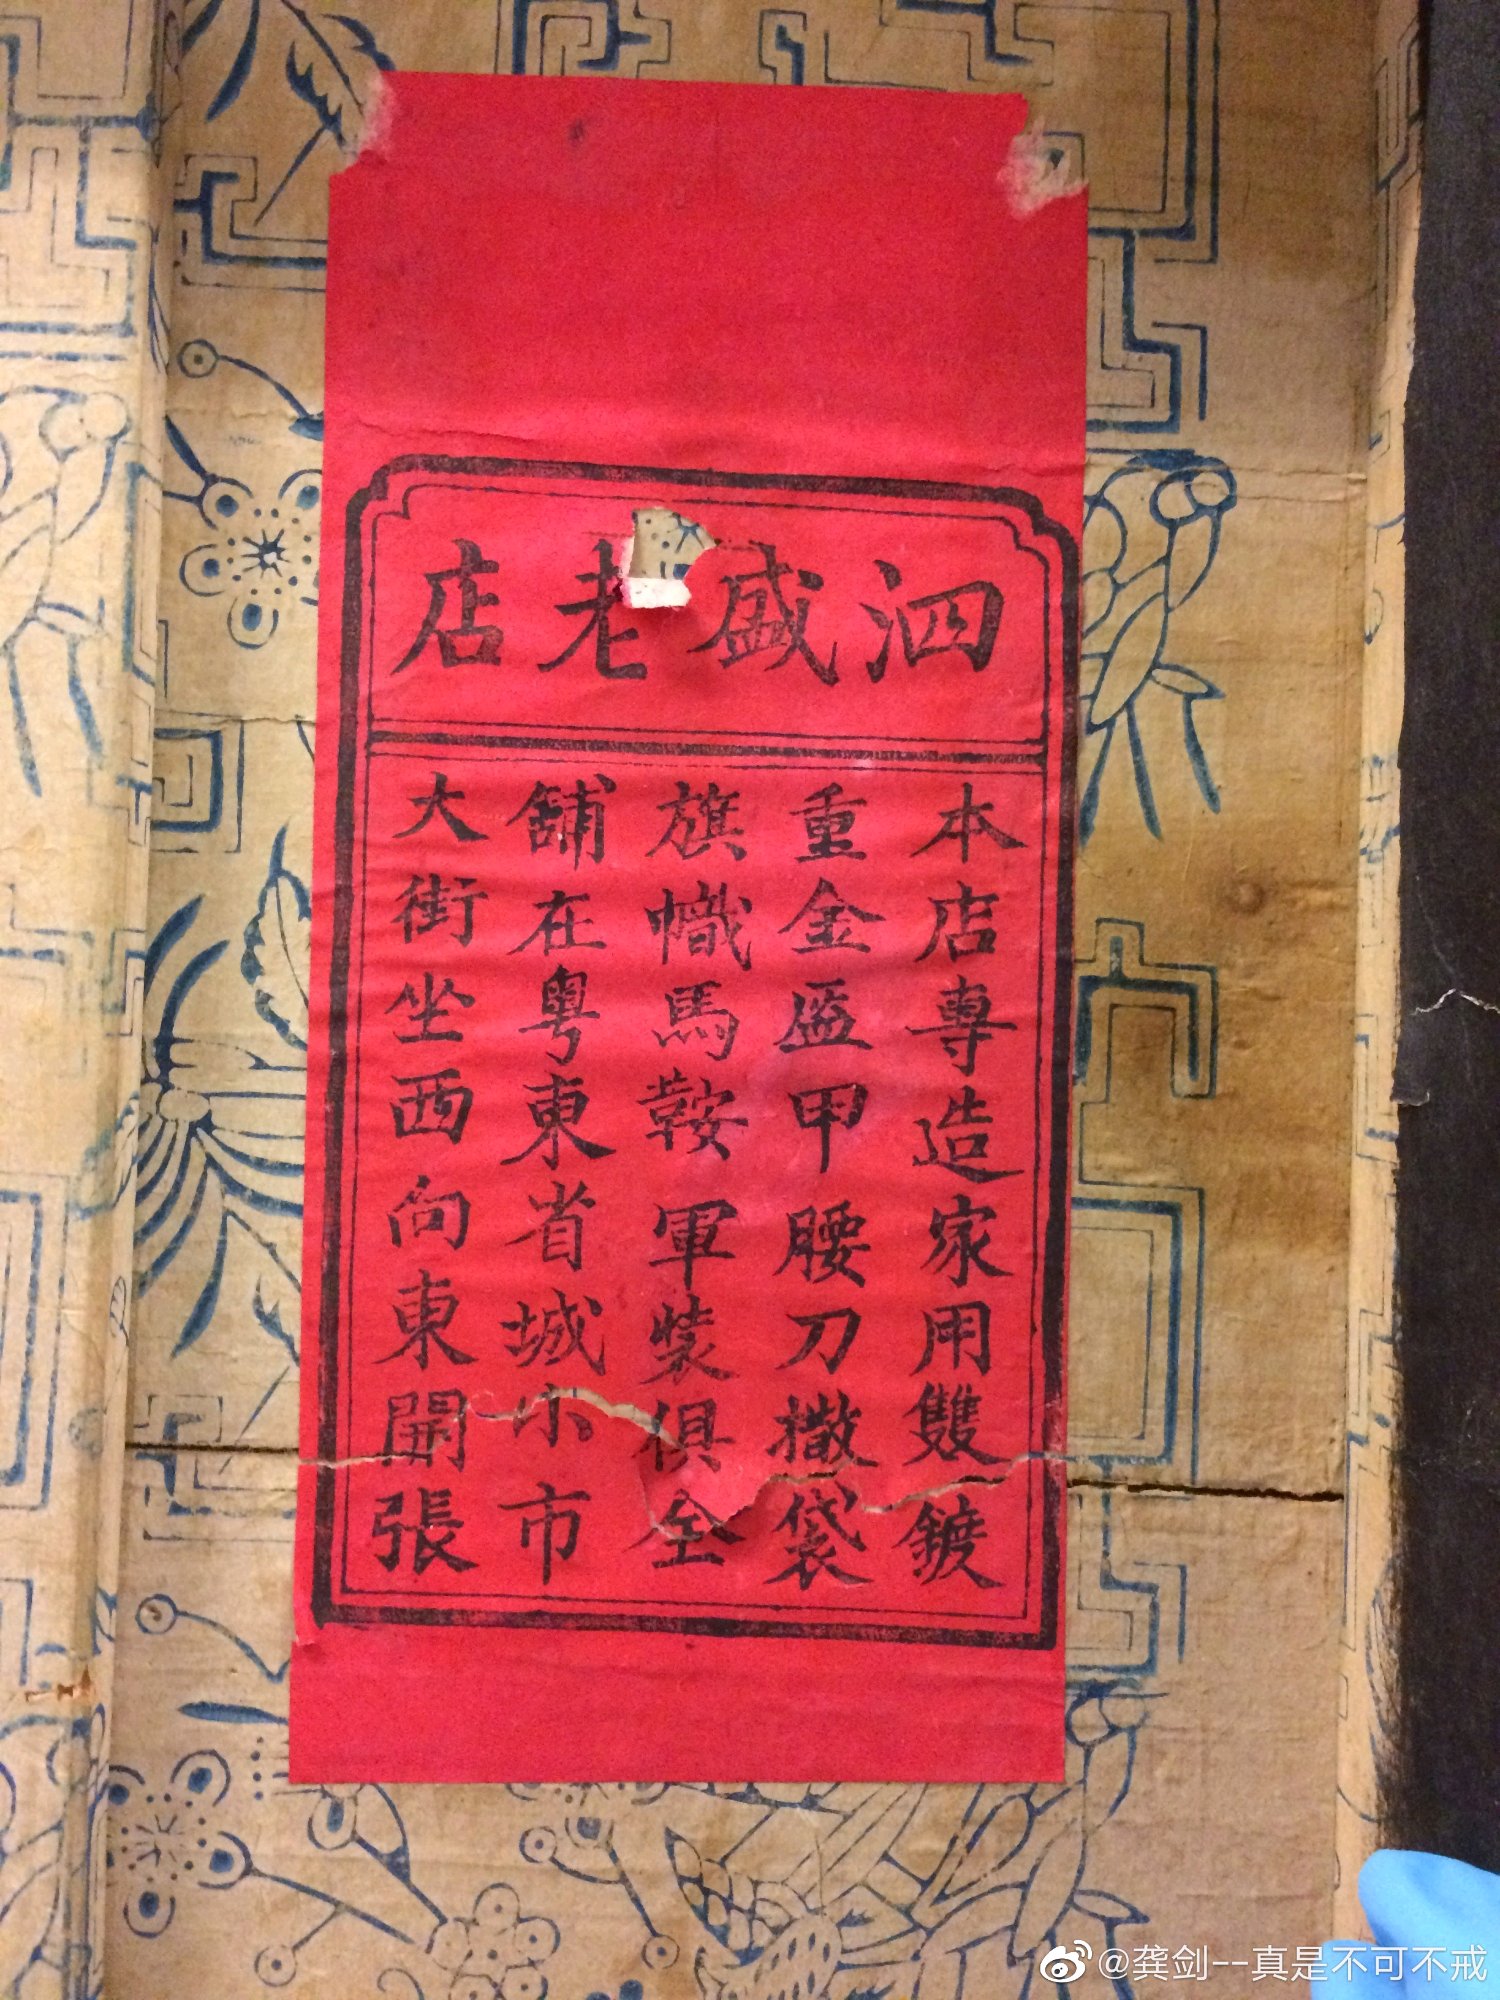 泗盛老店
本店專造家用雙鍍
重金盔甲腰刀撒袋
旗幟馬鞍軍裝俱全
舖在粵東省城小市
大街坐西向東開張
@龚剑--真是不可不戒